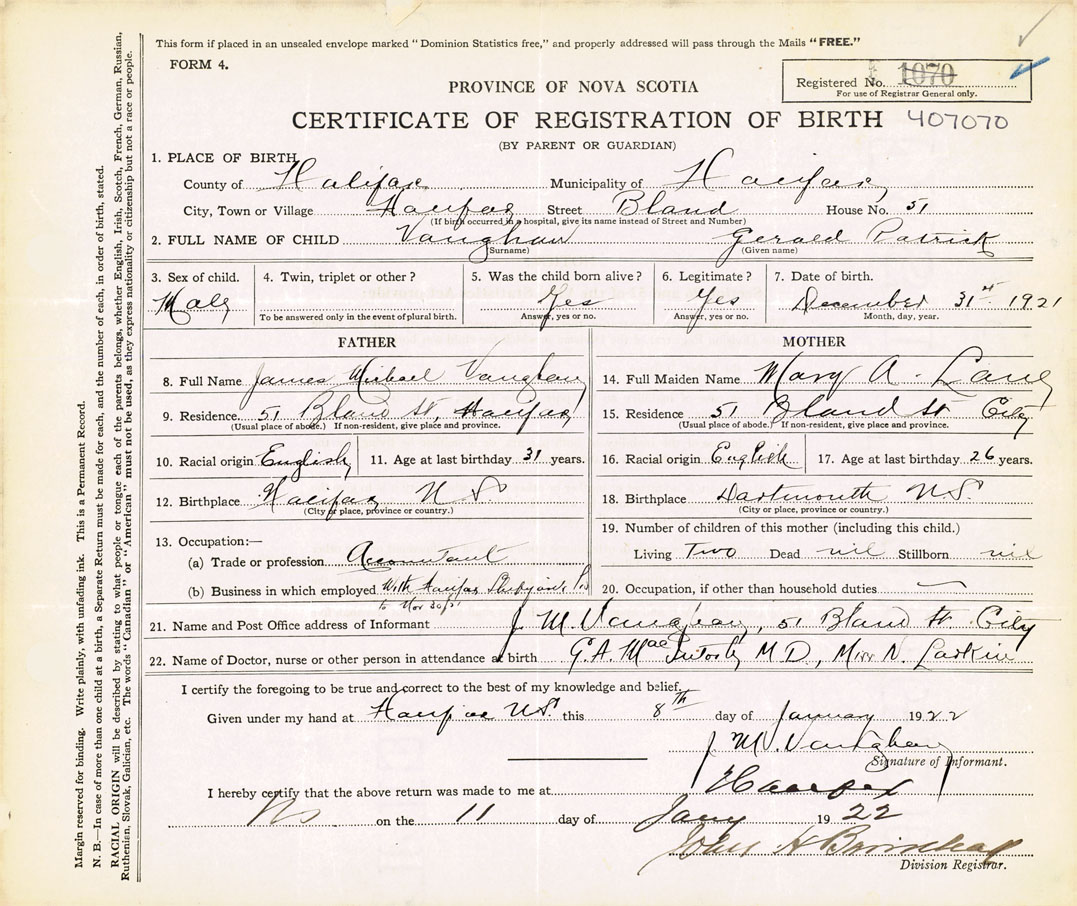 This form if placed in an unsealed envelope marked "Dominion Statistics free," and properly addressed will pass through the Mails "FREE."
FORM 4.
Registered No. 1070
For use of Registrar General only.
PROVINCE OF NOVA SCOTIA
CERTIFICATE OF REGISTRATION OF BIRTH 407070
(BY PARENT OR GUARDIAN)
1. PLACE OF BIRTH
County of Halifax Municipality of Halifax
City, Town or Village Halifax Street Bland House No. 51
(If birth occurred in a hospital, give its name instead of Street and Number)
2. FULL NAME OF CHILD Vaughan Gerald Patrick
(Surname) (Given name)
3. Sex of child. 4. Twin, triplet or other? 5. Was the child born alive? 6. Legitimate? 7. Date of birth.
Male Yes Yes December 31st 1921
To be answered only in the event of plural birth. Answer, yes or no. Answer, yes or no. Month, day, year.
FATHER
8. Full Name James Michael Vaughan
9. Residence. 51 Bland St, Halifax
(Usual place of abode.) If non-resident, give place and province.
10. Racial origin English 11. Age at last birthday 31 years.
12. Birthplace Halifax N S
(City or place, province or country.)
13. Occupation:—
(a) Trade or profession Accountant
(b) Business in which employed With Halifax Shipyards
to Nov 30/21
MOTHER
14. Full Maiden Name Mary A. Lane
15. Residence 51 Bland St City
(Usual place of abode.) If non-resident, give place and province.
16. Racial origin English 17. Age at last birthday 26 years.
18. Birthplace Dartmouth N.S.
(City or place, province or country.)
19. Number of children of this mother (including this child.)
Living Two Dead nil Stillborn nil
20. Occupation, if other than household duties
21. Name and Post Office address of Informant J. M. Vaughan, 51 Bland St. City
22. Name of Doctor, nurse or other person in attendance at birth G. A. MacIntosh M D., Miss N. Larkin
I certify the foregoing to be true and correct to the best of my knowledge and belief.
Given under my hand at Halifax N.S. this 8th day of January 1922
J. M. Vaughan
Signature of Informant.
I hereby certify that the above return was made to me at Halifax
NS on the 11 day of Jany 1922
John H
Division Registrar.
Margin reserved for binding. Write plainly, with unfading ink. This is a Permanent Record.
N. B.—In case of more than one child at a birth, a Separate Return must be made for each, and the number of each, in order of birth, stated.
RACIAL ORIGIN will be described by stating to what people or tongue each of the parents belongs, whether English, Irish, Scotch, French, German, Russian,
Ruthenian, Slovak, Galician, etc. The words "Canadian" or "American" must not be used, as they express nationality or citizenship but not a race or people.